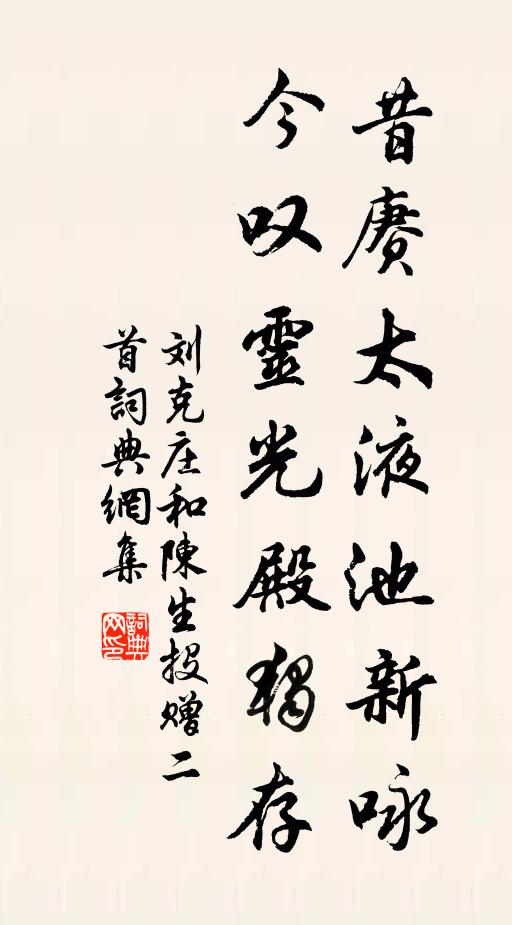 昔赓太液池新咏
今叹靈光殿独存
刘克庄和陳生投赠二
首詞典網集
詞典
网印